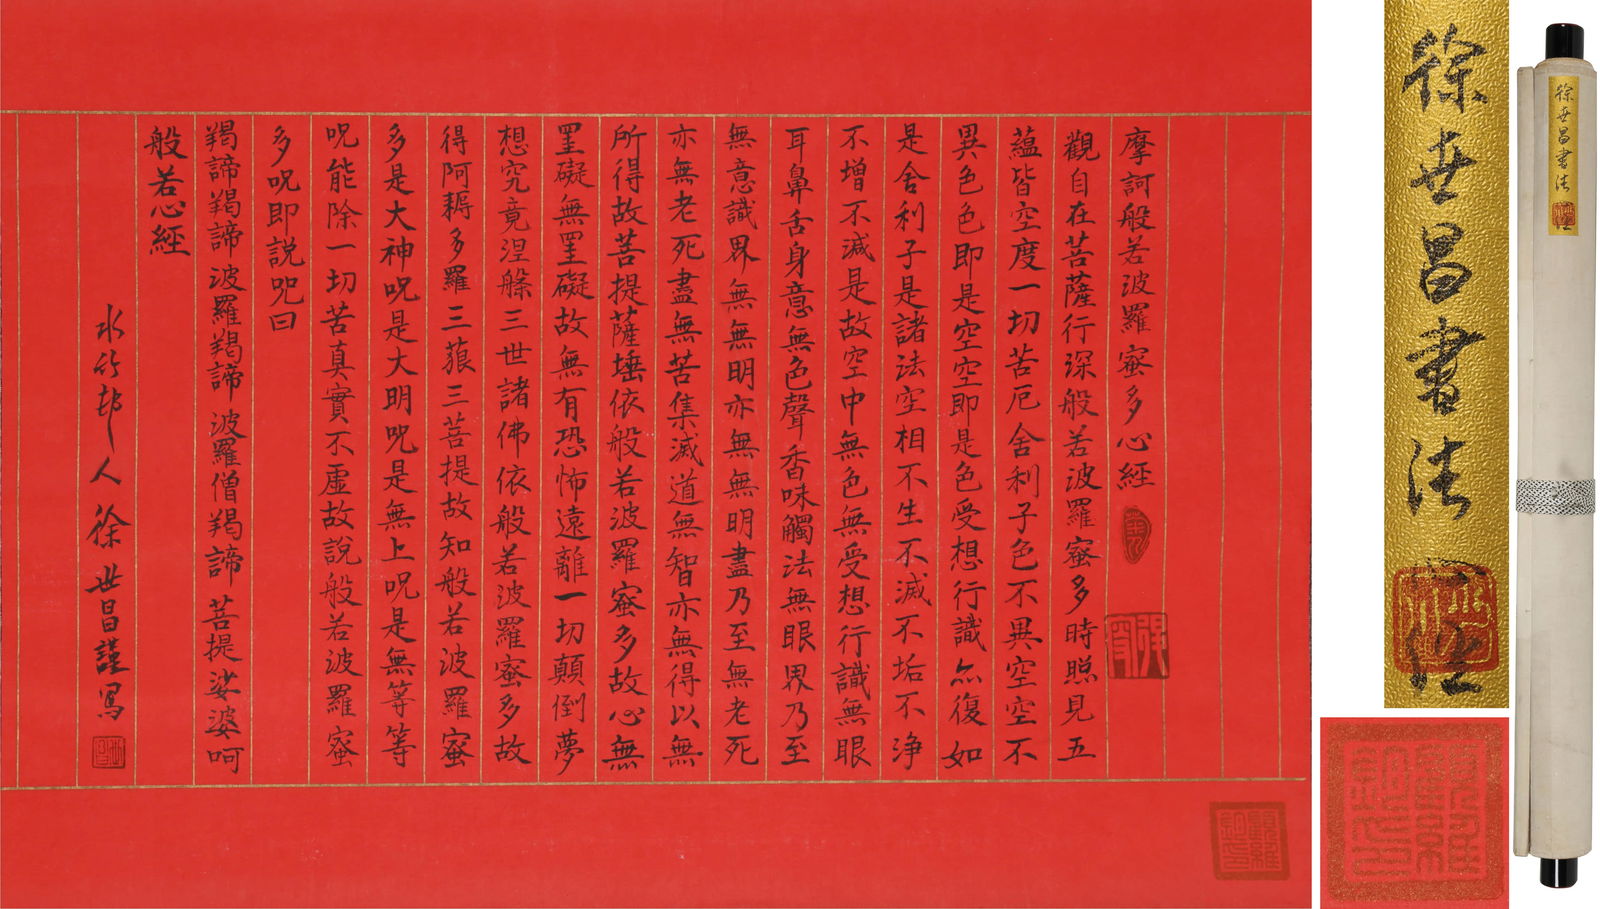 摩訶般若波羅蜜多心經
觀自在菩薩行深般若波羅蜜多時照見五
蘊皆空度一切苦厄舍利子色不異空空不
異色色即是空空即是色受想行識亦復如
是舍利子是諸法空相不生不滅不垢不淨
不增不減是故空中無色無受想行識無眼
耳鼻舌身意無色聲香味觸法無眼界乃至
無意識界無無明亦無無明盡乃至無老死
亦無老死盡無苦集滅道無智亦無得以無
所得故菩提薩埵依般若波羅蜜多故心無
罣礙無罣礙故無有恐怖遠離一切顛倒夢
想究竟涅槃三世諸佛依般若波羅蜜多故
得阿耨多羅三藐三菩提故知般若波羅蜜
多是大神咒是大明咒是無上咒是無等等
咒能除一切苦真實不虛故說般若波羅蜜
多咒即說咒曰
羯諦羯諦波羅羯諦波羅僧羯諦菩提娑婆呵
般若心經
水竹邨人徐世昌謹寫
世昌
徐世昌書法
徐世昌書法